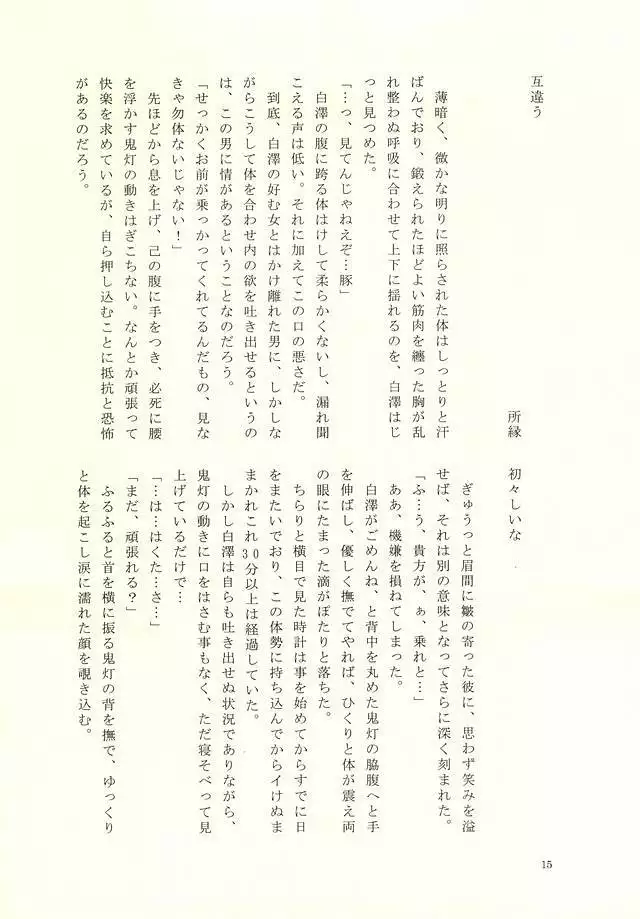 互違う
所縁
薄暗く、微かな明りに照らされた体はしっとりと汗
ばんでおり、鍛えられたほどよい筋肉を纏った胸が乱
れ整わぬ呼吸に合わせて上下に揺れるのを、白澤はじ
っと見つめた。
「…っ、見てんじゃねえぞ…豚」
白澤の腹に跨る体はけして柔らかくないし、漏れ聞
こえる声は低い。それに加えてこの口の悪さだ。
到底、白澤の好む女とはかけ離れた男に、しかしな
がらこうして体を合わせ内の欲を吐き出せるというの
は、この男に情があるということなのだろう。
「せっかくお前が乗っかってくれてるんだもの、見な
きゃ勿体ないじゃない！」
先ほどから息を上げ、己の腹に手をつき、必死に腰
を浮かす鬼灯の動きはぎこちない。なんとか頑張って
快楽を求めているが、自ら押し込むことに抵抗と恐怖
があるのだろう。
初々しいな
ぎゅうっと眉間に皺の寄った彼に、思わず笑みを溢
せば、それは別の意味となってさらに深く刻まれた。
「ふ…う、貴方が、ぁ、乗れと…」
ああ、機嫌を損ねてしまった。
白澤がごめんね、と背中を丸めた鬼灯の脇腹へと手
を伸ばし、優しく撫でてやれば、ひくりと体が震え両
の眼にたまった滴がぽたりと落ちた。
ちらりと横目で見た時計は事を始めてからすでに日
をまたいでおり、この体勢に持ち込んでからイけぬま
まかれこれ30分以上は経過していた。
しかし白澤は自らも吐き出せぬ状況でありながら、
鬼灯の動きに口をはさむ事もなく、ただ寝そべって見
上げているだけで…
「…は…はくた…さ…」
「まだ、頑張れる？」
ふるふると首を横に振る鬼灯の背を撫で、ゆっくり
と体を起こし涙に濡れた顔を覗き込む。
15